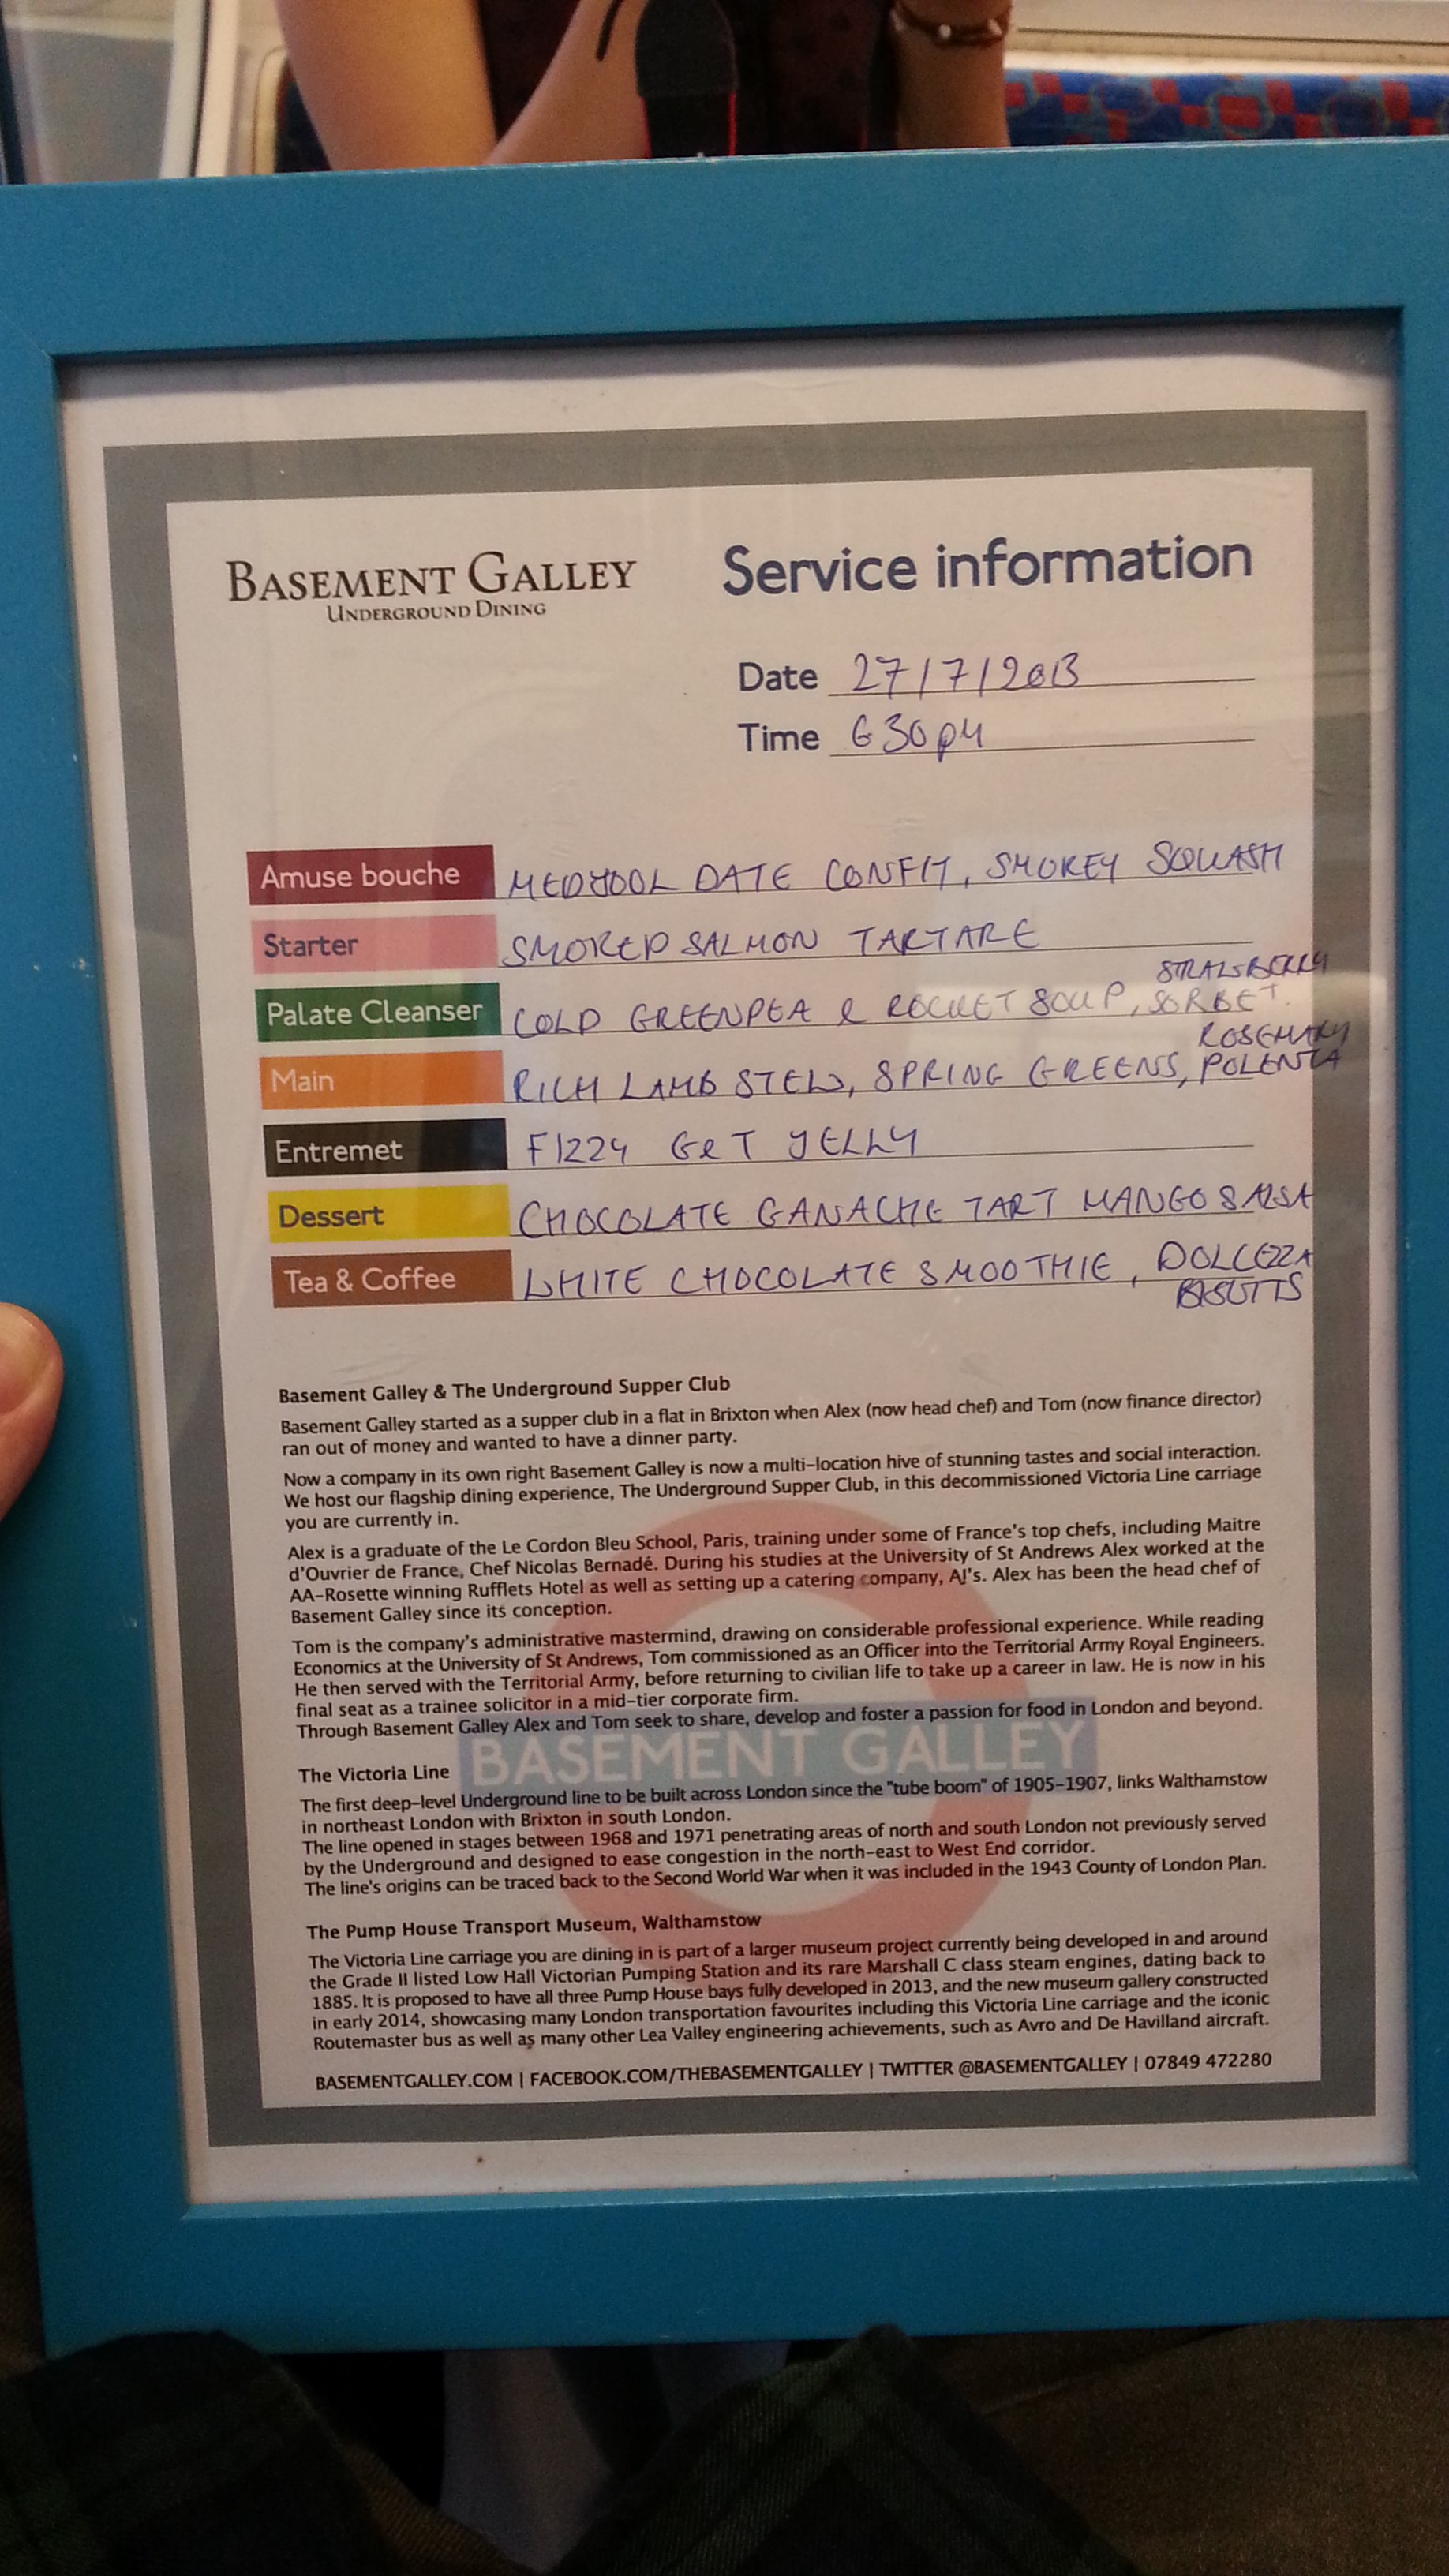 BASEMENT GALLEY
UNDERGROUND DINING
Service information
Date 27/7/2013
Time 630pm
Amuse bouche MEDJOOL DATE CONFIT, SMOKEY SQUASH
Starter SMOKED SALMON TARTARE
STRAWBERRY
Palate Cleanser COLD GREENPEA & ROCKET SOUP, SORBET.
ROSEMARY
Main RICH LAMB STEW, SPRING GREENS, POLENTA
Entremet FIZZY G&T JELLY
Dessert CHOCOLATE GANACHE TART MANGO SALSA
Tea & Coffee WHITE CHOCOLATE SMOOTHIE, DOLCEZZA
Basement Galley & The Underground Supper Club
Basement Galley started as a supper club in a flat in Brixton when Alex (now head chef) and Tom (now finance director)
ran out of money and wanted to have a dinner party.
Now a company in its own right Basement Galley is now a multi-location hive of stunning tastes and social interaction.
We host our flagship dining experience, The Underground Supper Club, in this decommissioned Victoria Line carriage
you are currently in.
Alex is a graduate of the Le Cordon Bleu School, Paris, training under some of France's top chefs, including Maitre
d'Ouvrier de France, Chef Nicolas Bernadé. During his studies at the University of St Andrews Alex worked at the
AA-Rosette winning Rufflets Hotel as well as setting up a catering company, AJ's. Alex has been the head chef of
Basement Galley since its conception.
Tom is the company's administrative mastermind, drawing on considerable professional experience. While reading
Economics at the University of St Andrews, Tom commissioned as an Officer into the Territorial Army Royal Engineers.
He then served with the Territorial Army, before returning to civilian life to take up a career in law. He is now in his
final seat as a trainee solicitor in a mid-tier corporate firm.
Through Basement Galley Alex and Tom seek to share, develop and foster a passion for food in London and beyond.
BASEMENT GALLEY
The Victoria Line
The first deep-level Underground line to be built across London since the "tube boom" of 1905-1907, links Walthamstow
in northeast London with Brixton in south London.
The line opened in stages between 1968 and 1971 penetrating areas of north and south London not previously served
by the Underground and designed to ease congestion in the north-east to West End corridor.
The line's origins can be traced back to the Second World War when it was included in the 1943 County of London Plan.
The Pump House Transport Museum, Walthamstow
The Victoria Line carriage you are dining in is part of a larger museum project currently being developed in and around
the Grade II listed Low Hall Victorian Pumping Station and its rare Marshall C class steam engines, dating back to
1885. It is proposed to have all three Pump House bays fully developed in 2013, and the new museum gallery constructed
in early 2014, showcasing many London transportation favourites including this Victoria Line carriage and the iconic
Routemaster bus as well as many other Lea Valley engineering achievements, such as Avro and De Havilland aircraft.
BASEMENTGALLEY.COM | FACEBOOK.COM/THEBASEMENTGALLEY | TWITTER @BASEMENTGALLEY | 07849 472280